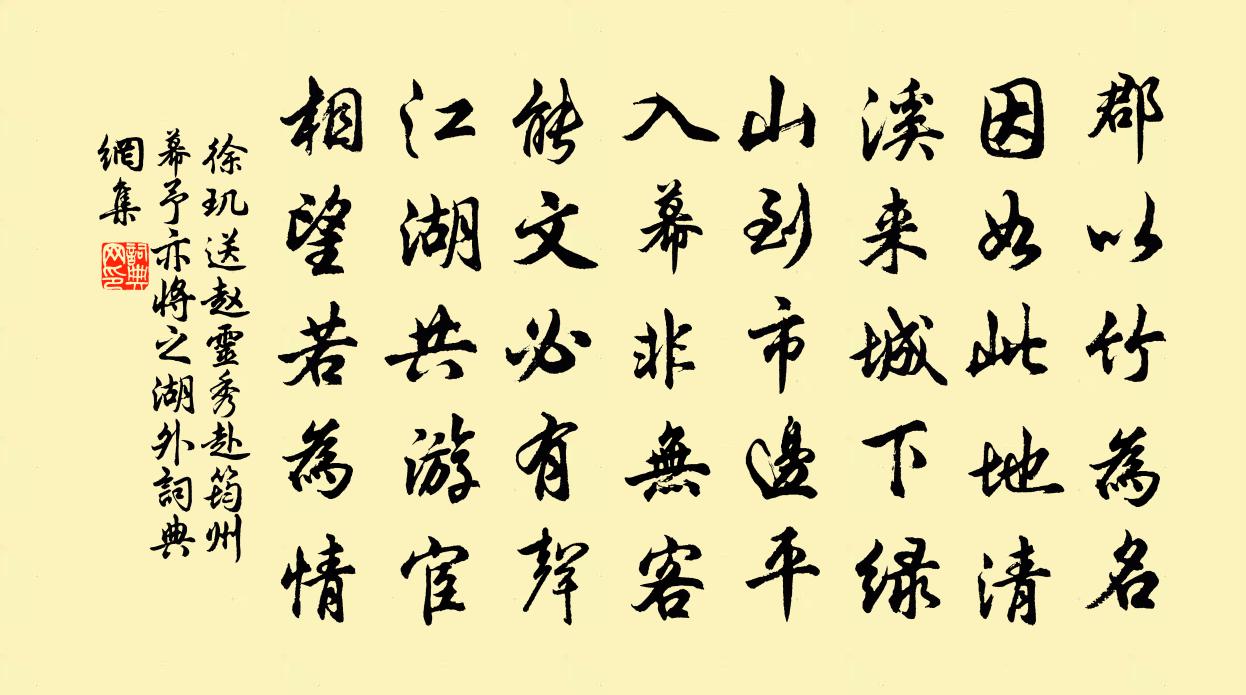 郡以竹為名
因如此地清
溪来城下绿
山到市邊平
入幕非無客
能文必有聲
江湖共游宦
相望若為情
徐玑送赵靈秀赴筠州
幕予亦将之湖外詞典
網集
詞典網印